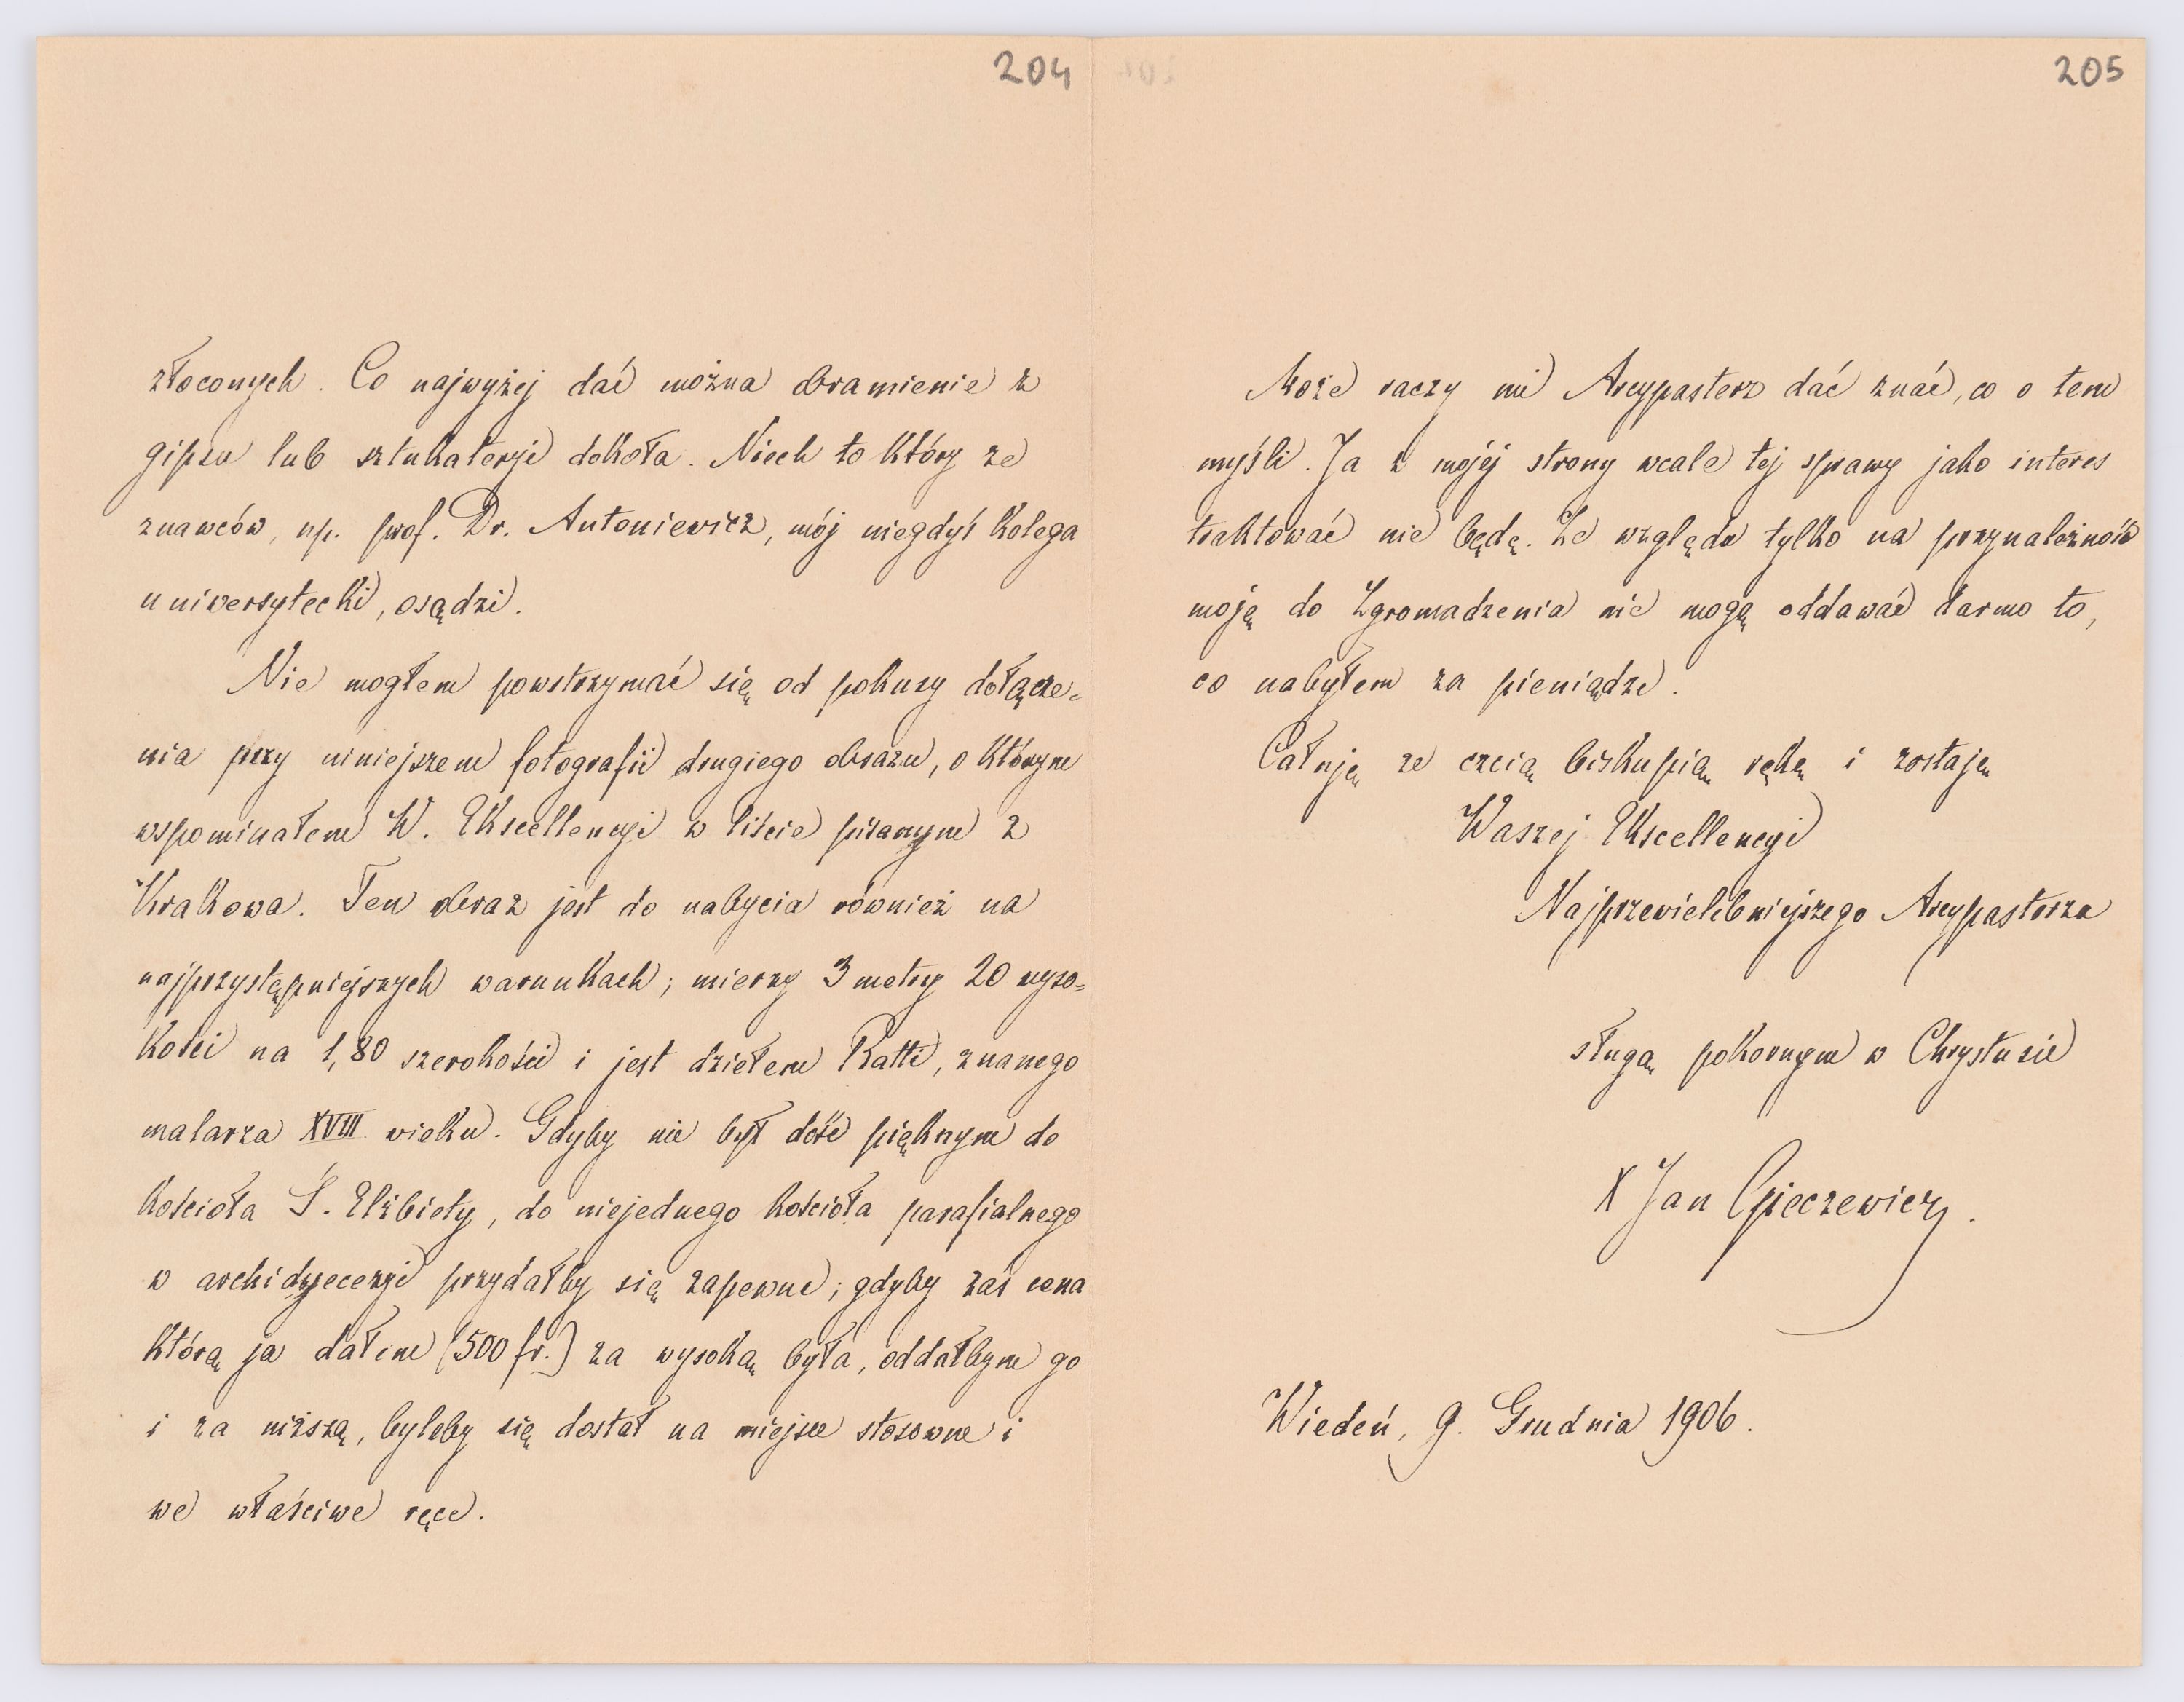 204
złoconych. Co najwyżej dać można obramienie z
gipsu lub sztukateryi dokoła. Niech to który ze
znawców, np. prof. Dr. Antoniewicz, mój niegdyś kolega
uniwersytecki, osądzi.
Nie mogłem powstrzymać się od pokusy dołącze=
nia przy niniejszem fotografii drugiego obrazu, o którym
wspominałem W. Ekscellencyi w liście pisanym z
Krakowa. Ten obraz jest do nabycia również na
najprzystępniejszych warunkach; mierzy 3 metry 20 wyso=
kości na 1,80 szerokości i jest dziełem Ratti, znanego
malarza XVIII wieku. Gdyby nie był dość pięknym do
kościoła Ś. Elżbiety, do niejednego kościoła parafialnego
w archidyecezyi przydałby się zapewne; gdyby zaś cena
którą ja dałem (500 fr.) za wysoką była, oddałbym go
i za niższą, byleby się dostał na miejsce stosowne i
we właściwe ręce.
205
Może raczy mi Arcypasterz dać znać, co o tem
myśli. Ja z mojéj strony wcale tej sprawy jako interes
traktować nie będę. Ze względu tylko na przynależność
moją do Zgromadzenia nie mogę oddawać darmo to,
co nabyłem za pieniądze.
Całuję ze czcią biskupią rękę i zostaję
Waszej Ekscellencyi
Najprzewielebniejszego Arcypasterza
sługą pokornym w Chrystusie
X Jan Gieczewicz.
Wiedeń, 9. Grudnia 1906.